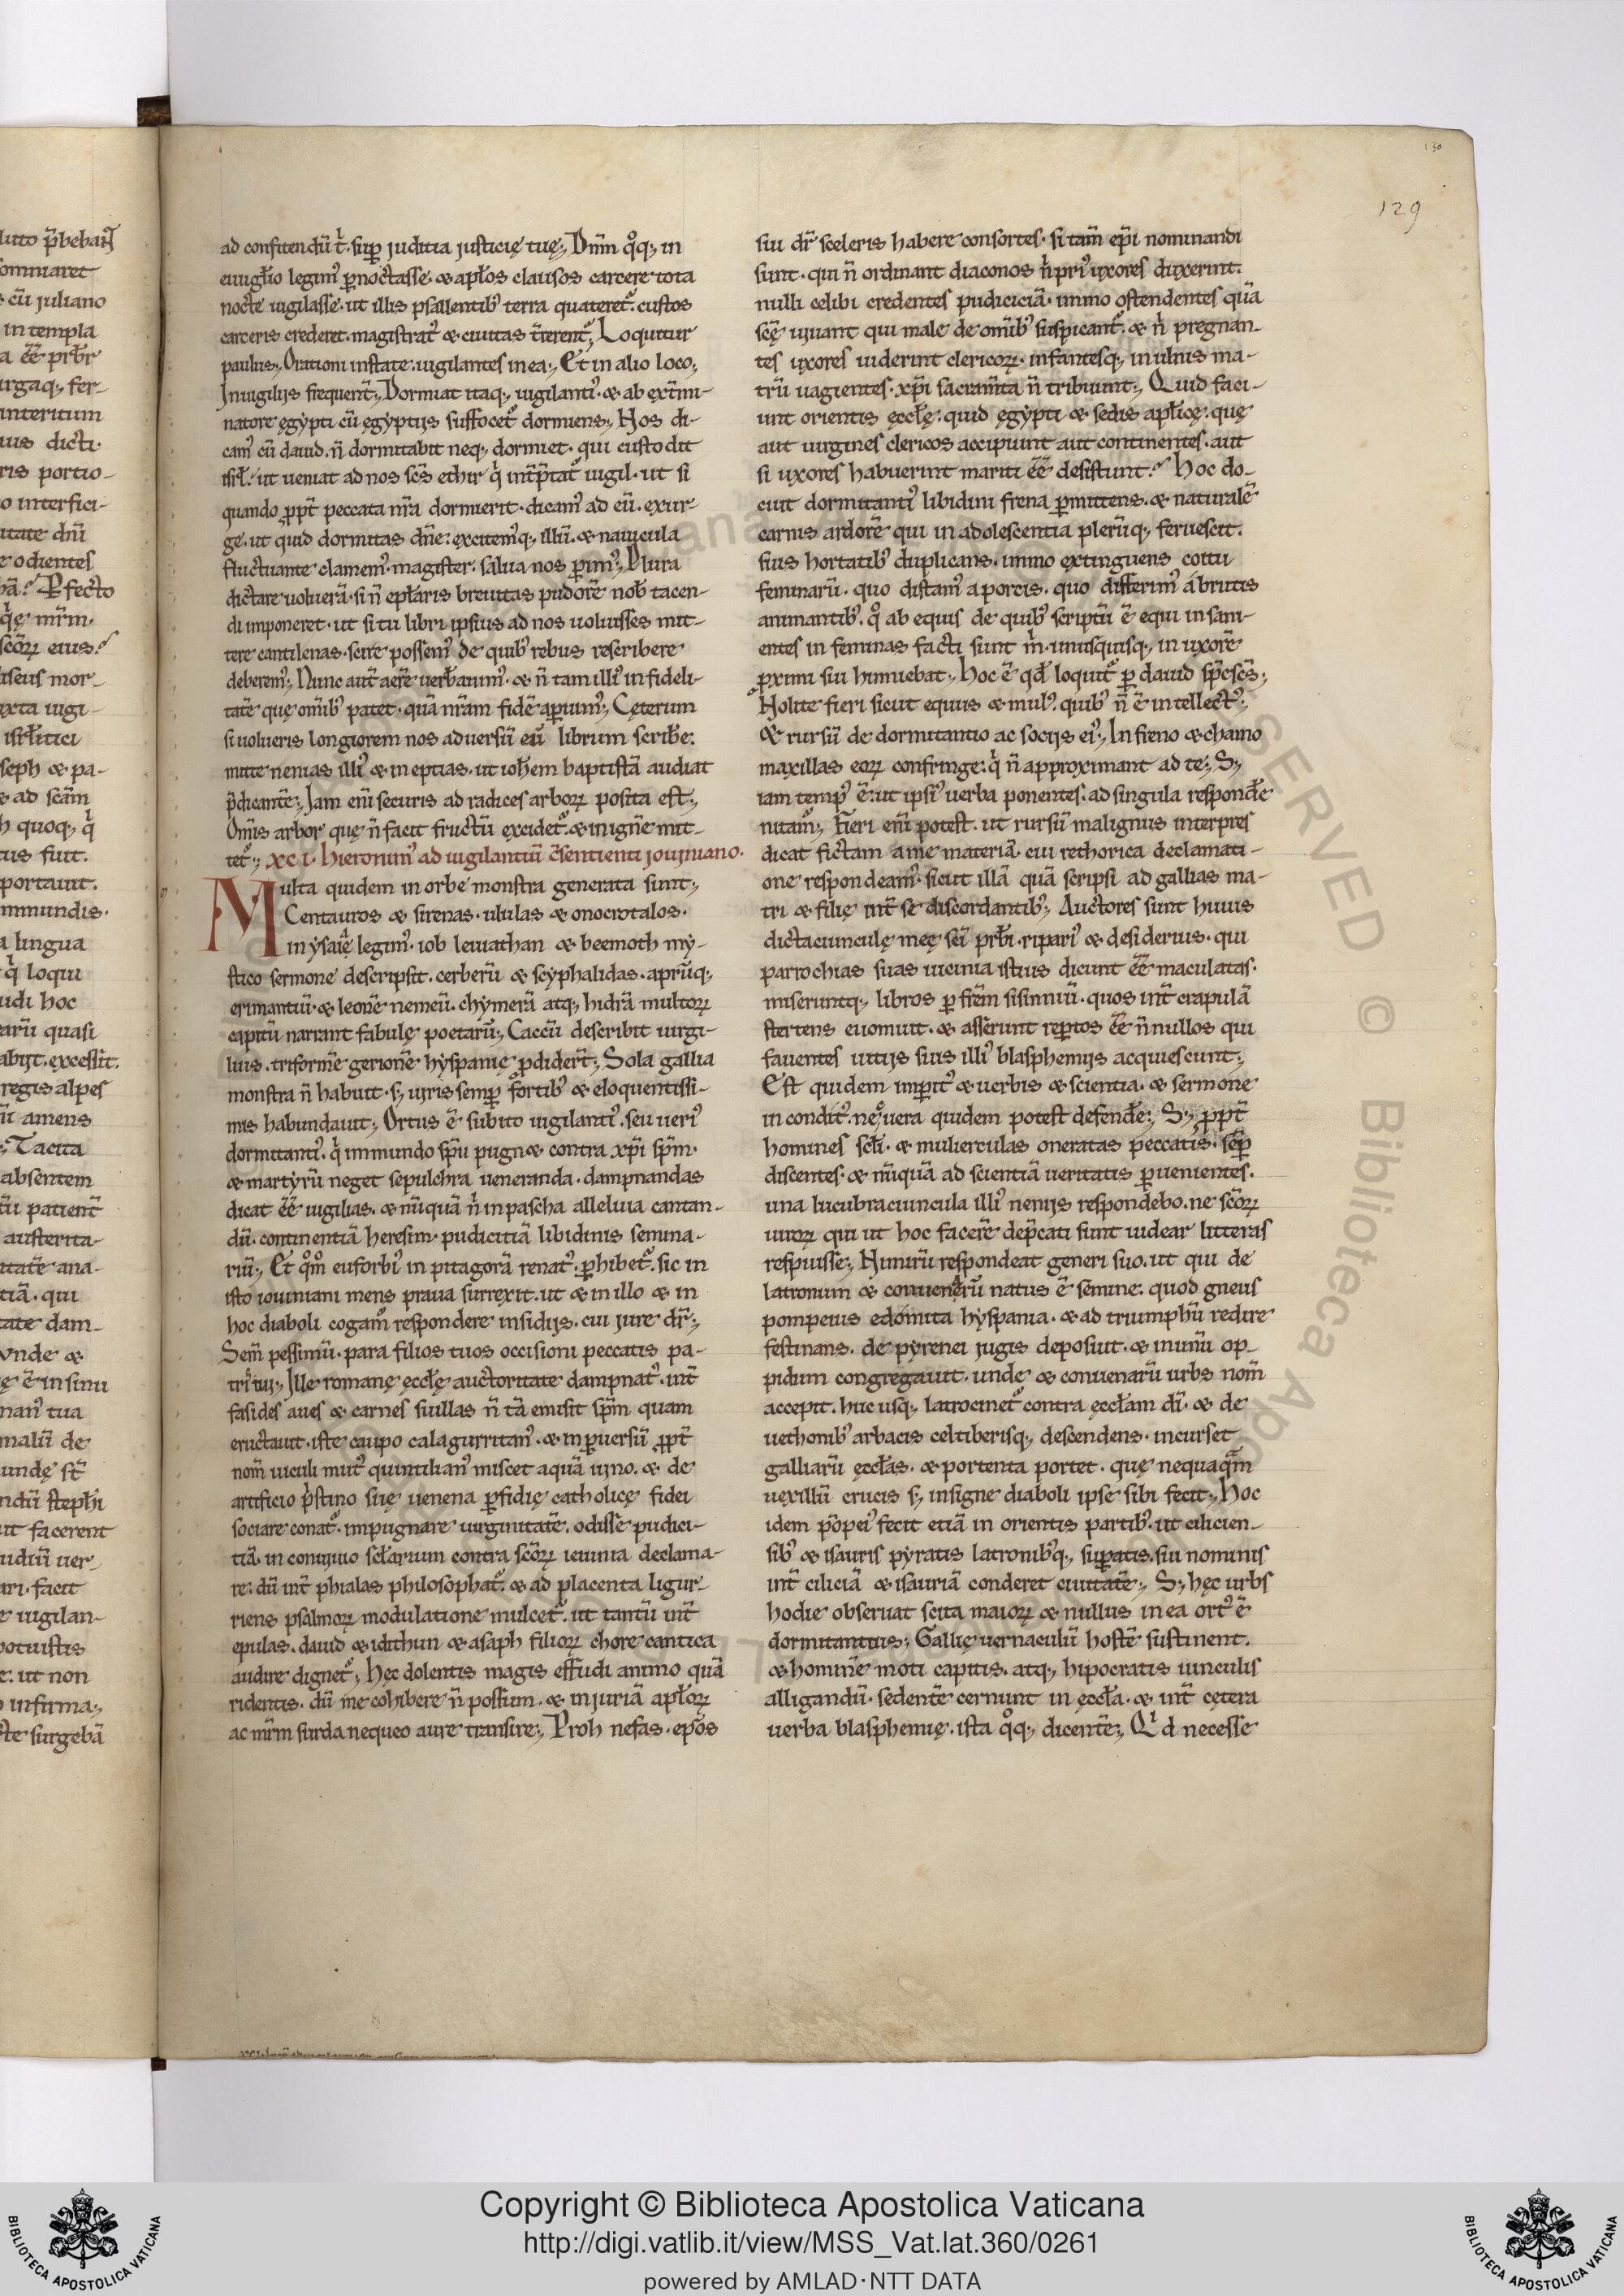 130
129
ad confitendũ t̉. suꝑ juditia justicię tuę; Dnm̃ q̊q; in
euugłio legim᷒ ꝑnoctasse. & apłos clausos carcere tota
nocte uigilasse. ut illis psallentib᷒ terra quateret᷑. custos
carceris crederet. magistrat᷒ & ciuitas t̃rerent᷑; Loquitur
paulus; Orationi instate uigilantes in ea; Et in alio loco;
In uigilijs frequent̃; Dormiat itaq; uigilanti᷒. & ab ext̃mi-
natore egypti cũ egyptijs suffocet᷑ dormiens; Nos di-
cam᷒ cũ dauid. ñ dormitabit neq; dormiet. qui custodit
isrł. ut ueniat ad nos sc̃s ethir q̉ int̃p̃tat᷑ uigil. ut si
quando ꝓpt̃ peccata nr̃a dormierit. dicam᷒ ad eũ. exur-
ge. ut quid dormitas dñe. excitem᷒q; illũ. & nauicula
fluctuante clamem᷒. magister. salua nos ꝑim᷒; Plura
dictare uoluerã. si ñ epłaris breuitas pudorẽ nob̃ tacen-
di imponeret. ut si tu libri ipsius ad nos uoluisses mit-
tere cantilenas. scire possem᷒ de quib᷒ rebus rescribere
deberem᷒; Nunc aut̃ aerẽ uerbãuim᷒. & ñ tam illi᷒ infideli-
tatẽ quę omĩb᷒ patet. quã nr̃am fidẽ aꝑuim᷒; Cęterum
si uolueris longiorem nos aduersũ eũ librum scrib̃e.
mitte nenias illi᷒ & ineptias. ut ioh̃em baptistã audiat
p̃dicantẽ; Jam eni᷒ securis ad radices arborꝝ posita est;
Om̃is arbor quę ñ facit fructũ excidet᷑. & in ignẽ mit-
tet᷑; XCI. Hieronim᷒ ad uigilantiũ c̃sentienti jouiniano.
Multa quidem in orbe monstra generata sunt;
Centauros & sirenas. ululas & onocrotalos.
in ysaię legim᷒. iob leuiathan & beemoth my-
stico sermone descripsit. cerberũ & scyphalidas. aprũq;
erimantiũ. & leonẽ nemeũ. chymerã atq; hidrã multorꝝ
capitũ narrant fabulę poetarũ; Caccũ describit uirgi-
lius. triformẽ gerionẽ hyspanię ꝓdider̃t; Sola gallia
monstra ñ habuit. s; uiris semꝑ fortib᷒ & eloquentissi-
mis habundauit; Ortus ẽ subito uigilanti᷒. seu ueri᷒
dormitanti᷒. q̉ immundo sp̃u pugn& contra xp̃i sp̃m.
& martyrũ neget sepulchra ueneranda. dampnandas
dicat ẽẽ uigilias. & nũquã ñ in pascha alleluia cantan-
dũ. continentiã heresim. pudicitiã libidinis semina-
riũ; Et q̊m euforbi᷒ in pitagorã renat᷒ ꝑhibet᷑. sic in
isto iouiniani mens praua surrexit. ut & in illo & in
hoc diaboli cogam᷒ respondere insidijs. cui jure dr̃;
Sem̃ pessimũ. para filios tuos occisioni peccatis pa-
tri᷒ tui; Ille romanę ęccłę auctoritate dampnat᷒. int̃
fasides aues & carnes suillas ñ tã emisit sp̃m quam
eructauit. iste caupo calagurritan᷒. & in ꝑuersũ ꝓpt̃
nom̃ uiculi mut᷒ quintilian᷒ miscet aquã uino. & de
artificio p̃stino suę uenena ꝑfidię catholicę fidei
sociare conat᷑. impugnare uirginitatẽ. odisse pudici-
tiã. in conuiuio scłarium contra sc̃orꝝ ieiunia declama-
re. dũ int̃ phialas philosophat᷑. & ad placenta ligur-
riens psalmorꝝ modulatione mulcet᷑. ut tantũ int̃
epulas. dauid & idithun & asaph filiorꝝ chore cantica
audire dignet᷑; Hęc dolentis magis effudi animo quã
ridentis. dũ me cohibere ñ possum. & injuriã apłorꝝ
ac mr̃m surda nequeo aure transire; Proh nefas. ep̃os
sui dr̃ sceleris habere consortes. si tam̃ ep̃i nominandi
sunt. qui ñ ordinant diaconos ñ pri᷒ uxores duxerint.
nulli celibi credentes pudiciciã. immo ostendentes quã
sc̃ę uiuant qui male de omĩb᷒ suspicant᷑. & ñ pregnan-
tes uxores uiderint clericorꝝ. infantesq; in ulnis ma-
trũ uagientes. xp̃i sacram̃ta ñ tribuunt; Quid faci-
unt orientis ęccłę. quid ęgypti & sedis apłicę. quę
aut uirgines clericos accipiunt aut continentes. aut
si uxores habuerint mariti ẽẽ desistunt? Hoc do-
cuit dormitanti᷒ libidini frena ꝑmittens. & naturalẽ
carnis ardorẽ qui in adolescentia plerũq; feruescit.
suis hortatib᷒ duplicans. immo extinguens coitu
feminarũ. quo distam᷒ a porcis. quo differim᷒ á brutis
animantib᷒. q̊ ab equis de quib᷒ scriptũ ẽ equi insani-
entes in feminas facti sunt m̉. unusquisq; in uxorẽ
ꝓximi sui hinniebat; Hoc ẽ qd̃ loquit᷑ ꝑ dauid sp̃c sc̃s;
Nolite fieri sicut equus & mul᷒. quib᷒ ñ ẽ intellect᷒;
& rursũ de dormitantio ac socijs ei᷒; In freno & chamo
maxillas eorꝝ confringe. q̉ ñ approximant ad te; S;
iam temp᷒ ẽ. ut ipsi᷒ uerba ponentes. ad singula respond̃e
nitam᷒; Fieri eni᷒ potest. ut rursũ malignus interpres
dicat fictam a me materiã. cui rethorica declamati-
one respondeam᷒. sicut illã quã scripsi ad gallias ma-
tri & filię int̃ se discordantib᷒; Auctores sunt huius
dictaciunculę meę sc̃i prb̃i. ripari᷒ & desiderius. qui
parrochias suas uicinia istius dicunt ẽẽ maculatas.
miseruntq; libros ꝑ fr̃em sisinniũ. quos int̃ crapulã
stertens euomuit. & asserunt reꝑtos ẽẽ ñnullos qui
fauentes uitijs suis illi᷒ blasphemijs acquiescunt;
Est quidem imꝑit᷒ & uerbis & scientia. & sermone
incondit᷒. ne uera quidem potest defend̃e; S; ꝓpt̃
homines scłi. & mulierculas oneratas peccatis. sẽꝑ
discentes. & nũquã ad scientiã ueritatis ꝑuenientes.
una lucubraciuncula illi᷒ nenijs respondebo. ne sc̃orꝝ
uirorꝝ qui ut hoc facerẽ dep̃cati sunt uidear litteras
respuisse; Nimirũ respondeat generi suo. ut qui de
latronum & conuenarũ natus ẽ semine. quod gneus
pompeius edomita hyspania. & ad triumphũ redire
festinans. de pyrenei jugis deposuit. & inunũ op-
pidum congregauit. unde & conuenarũ urbs nom̃
accepit. huc usq; latrocinet᷑ contra ęccłam dĩ. & de
uethonib᷒ arbacis celtiberisq; descendens. incurset
galliarũ ęccłas. & portenta portet. quę nequaq̃m
uexillũ crucis s; insigne diaboli ipse sibi fecit; Hoc
idem põpei᷒ fecit etiã in orientis partib᷒. ut cilicien-
sib᷒ & isauris pyratis latronib᷒q; suꝑatis. sui nominis
int̃ ciliciã & isauriã conderet ciuitatẽ; S; hęc urbs
hodie obseruat scita maiorꝝ & nullus in ea ort᷒ ẽ
dormitantius; Gallię uernaculũ hostẽ sustinent.
& hominẽ moti capitis. atq; hipocratis uinculis
alligandũ. sedentẽ cernunt in ęccła. & int̃ cętera
uerba blasphemię. ista q̊q; dicentẽ; Qͥd necesse
Copyright © Biblioteca Apostolica Vaticana
http://digi.vatlib.it/view/MSS_Vat.lat.360/0261
powered by AMLAD·NTT DATA